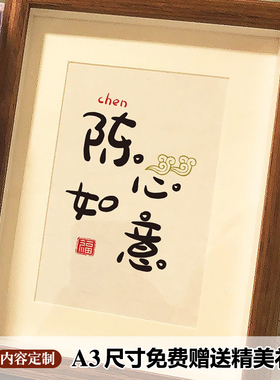 chen
陈心
如意
福
内容定制
A3尺寸免费赠送精美